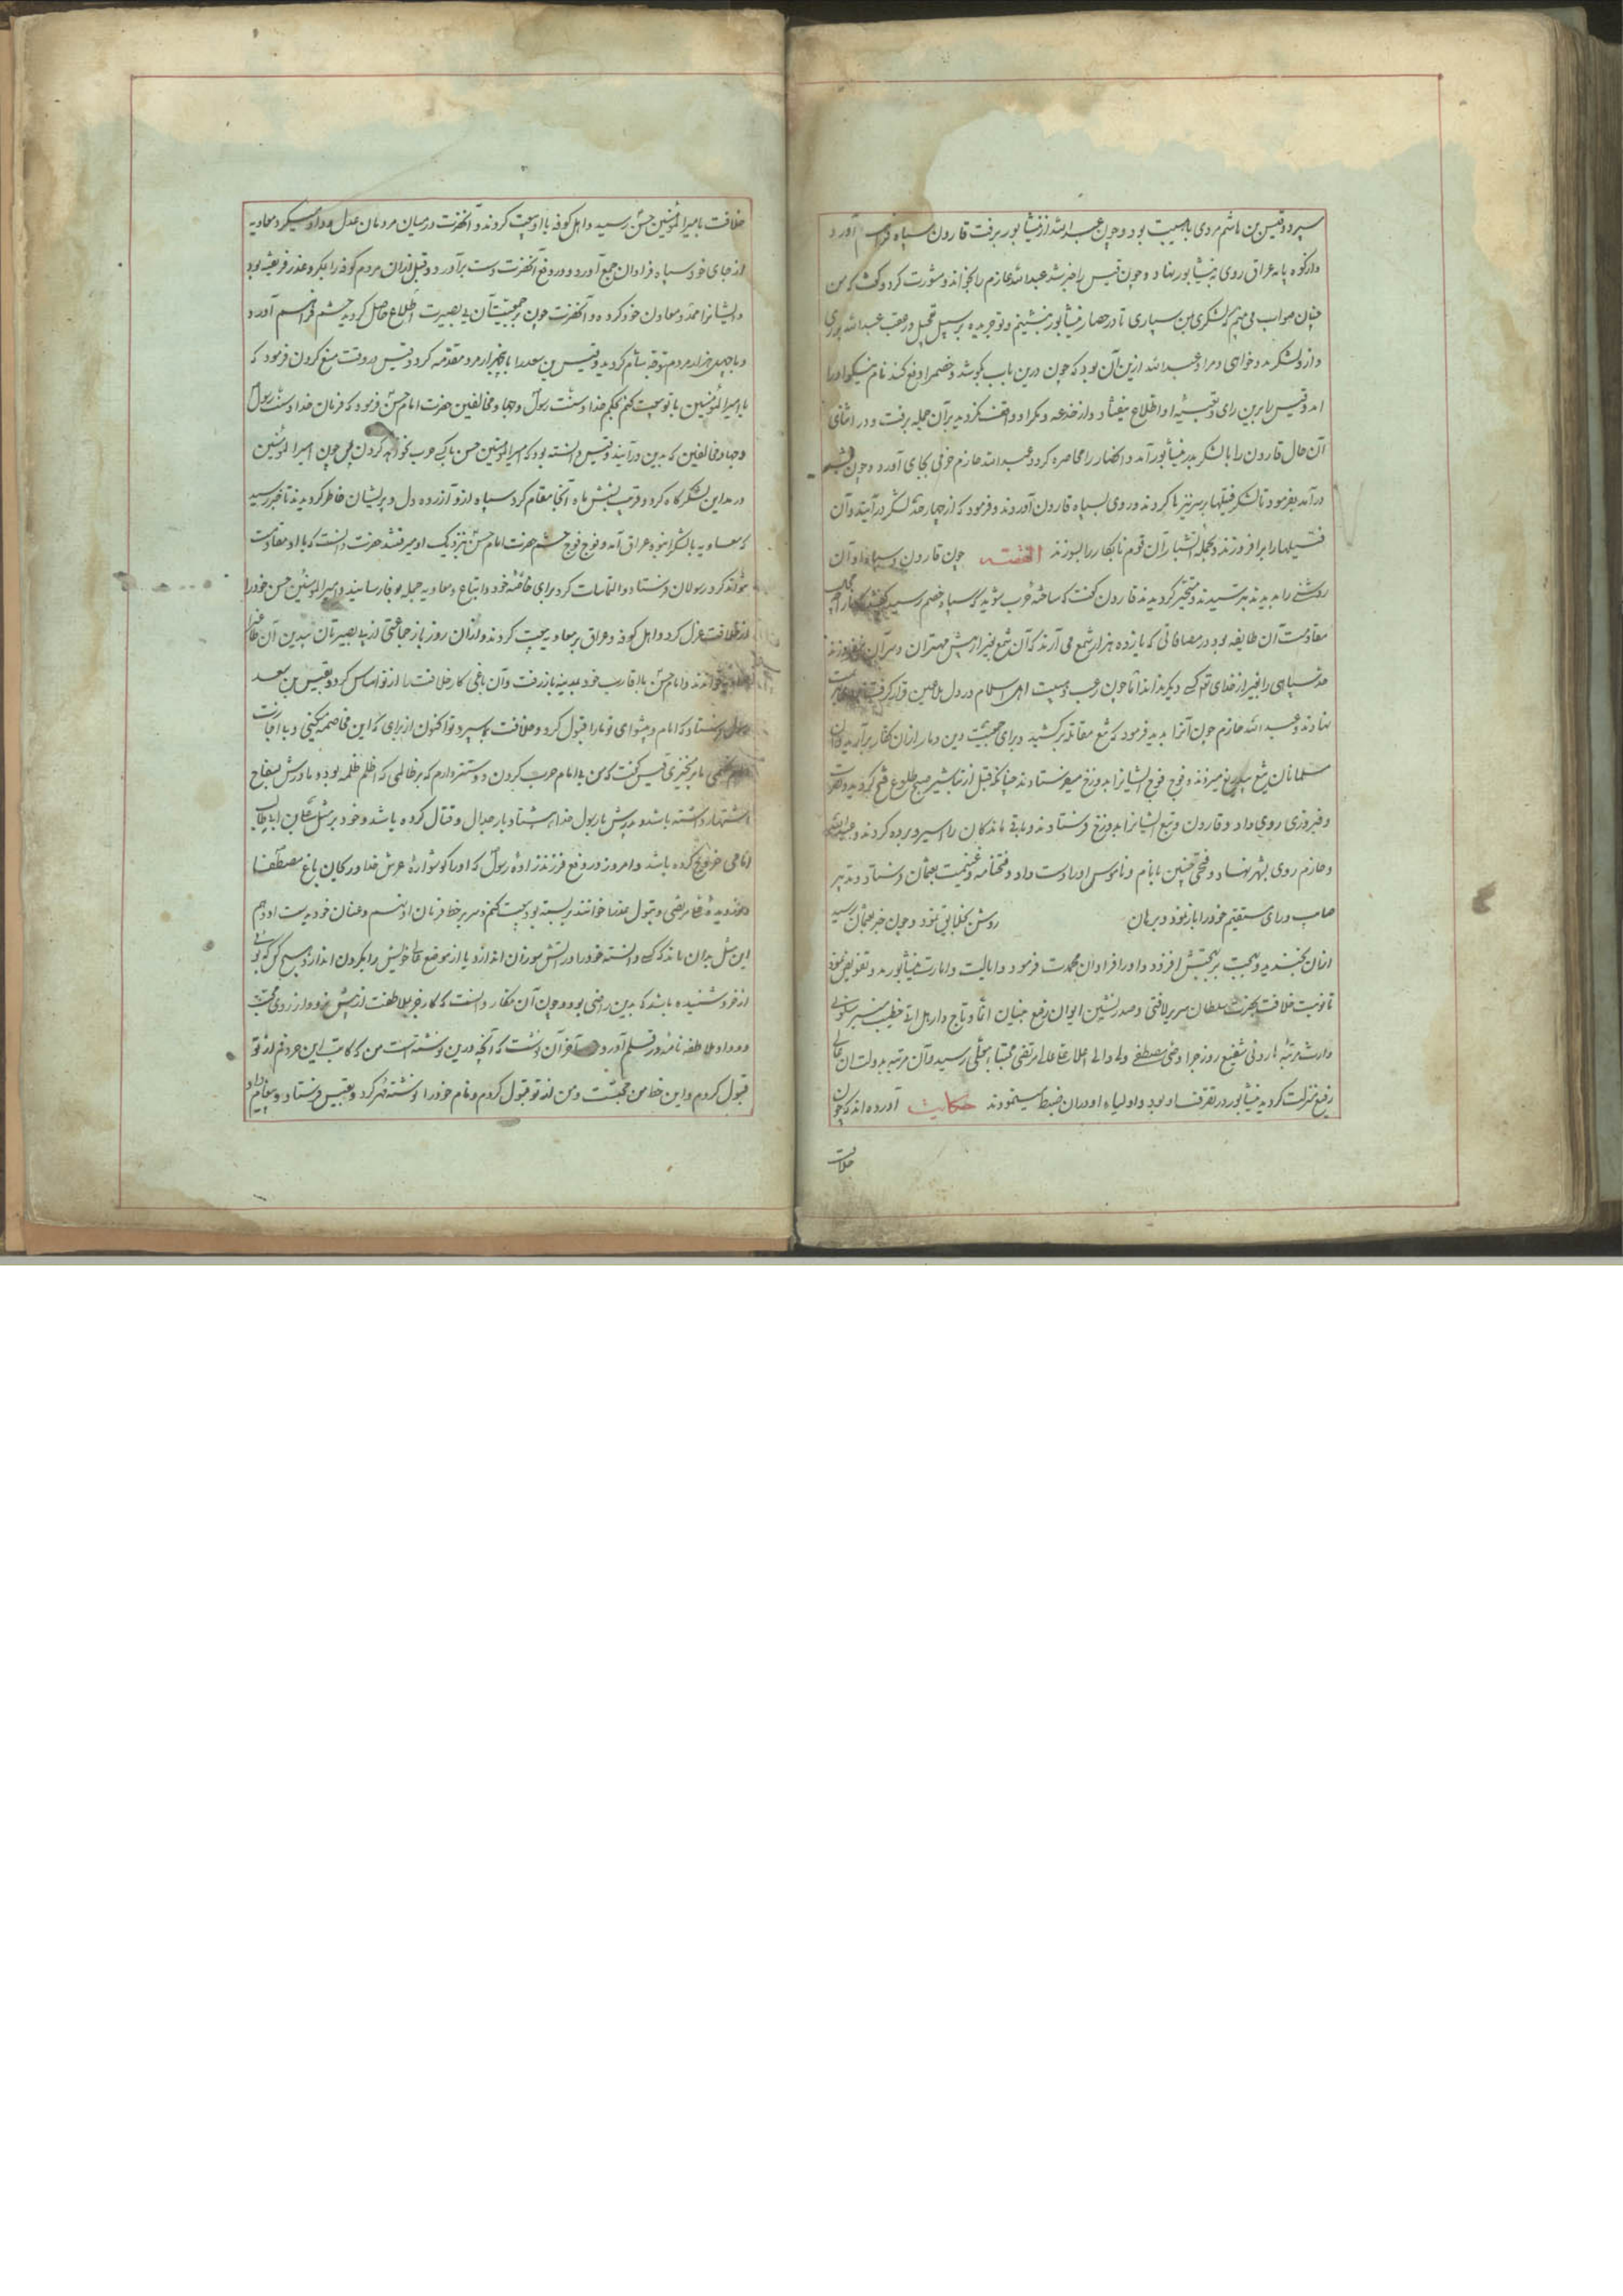 سپرد و قیس بن هاشم مردی باهیبت بود و چون عبدالله از نیشابور برفت قارون سپاه فراهم آورد
و از کوه پایه عراق روی به نیشابور نهاد و چون قیس را خبر شد عبدالله حازم را بخواند و مشورت کرد و گفت که من
چنان صواب می بینم که لشکری بمن سپاری تا در حصار نیشابور بنشینم و تو جریده بر سبیل تعجیل در عقب عبدالله بروی
و ازو لشکر مدد خواهی و مراد عبدالله ازین آن بود که چون درین باب بکوشد و خصم را دفع کند نام نیکو او را
آمد و قیس را برین رای و تعبیه او اطلاع نیفتاد و از خدعه و مکر او واقف نگردید بر آن جمله برفت و در اثنای
آن حال قارون را با لشکر بدر نیشابور آمد و آن حصار را محاصره کرد و عبدالله حازم حزمی بجای آورد و چون شب
درآمد بفرمود تا لشکر فتیلها بر سر نیزها کردند و روی بسپاه قارون آوردند و فرمود که از چهار حد لشکر درآیند و آن
فتیلها را برافروزند و بجمله آتشبار آن قوم نابکار را بسوزند القصه چون قارون و سپاه او آن
روشنی را بدیدند بترسیدند و متحیر گردیدند قارون گفت که ساخته حرب شوید که سپاه خصم رسید
مقاومت آن طایفه بود در مصافاتی که یازده هزار شمع می آرند که آن شمع بغیر از پیش مهتران و سران
سپاهی را بغیر از خدای تعالی کسی دیگر نداند اما چون رعب و هیبت اهل اسلام در دل ملاعین قرار گرفت
نهادند و عبدالله حازم چون آنرا بدید فرمود که تیغ مقاتله برکشید و برای حمیت دین دمار ازان کفار برآرید
مسلمانان تیغ بیدریغ میزدند و فوج فوج ایشانرا بدوزخ میفرستادند چنانکه قبل از تباشیر صبح طلوع فتح گردید و نصرت
و فیروزی روی داد و قارون و تبع ایشانرا بدوزخ فرستادند و باقی ماندگان را اسیر و برده کردند و عبدالله
حازم روی بشهر نهاد و فتحی چنین با نام و ناموس او را دست داد و فتحنامه و غنیمت بعثمان فرستاد و تدبیر
صایب و رای مستقیم خود را باز نمود و برهان روشن بخلایق نمود و چون خبر بعثمان رسید
ازان بخندید و تعجب بر تعجبش افزود و او را فراوان محمدت فرمود و ایالت و امارت نیشابور بدو تفویض نمود
تا نوبت خلافت بحضرت سلطان سریر لافتی و صدرنشین ایوان رفیع بنیان انما و تاجدار هل اتی خطیب منبر سلونی
وارث مرتبه هارونی شفیع روز جزا وصی مصطفی ولی والی اعلا علی مرتضی مجتبا معلی رسید و آن مرتبه بدولت آن عالی
رفیع منزلت گردید نیشابور در تصرف او بود و اولیاء او در آن ضبط مینمودند حکایت آورده اند که چون
خلافت
خلافت بامیرالمؤمنین حسن رسید و اهل کوفه با او بیعت کردند و آنحضرت در میان مردمان عدل و داد میکرد معاویه
از جای خود سپاه فراوان جمع آورد و در دفع آنحضرت دست برآورد و قبل ازان مردم کوفه را بمکر و غدر فریفته بود
و ایشانرا ممد و معاون خود کرده و آنحضرت چون بر جمعیت آن بی بصیرت اطلاع حاصل گردید حشم فراهم آورد
و با چهل هزار مردم متوجه شام گردید و قیس بن سعد را با پنج هزار مرد مقدمه کرد و قیس در وقت
یا امیرالمؤمنین با تو بیعت کنم بحکم خدا و سنت رسول و جهاد مخالفین حضرت امام حسن فرمود که فرمان خدا و سنت رسول
و جهاد مخالفین که بدین درآیند و قیس دانسته بود که امیرالمؤمنین حسن با کسی حرب نخواهد کردن پس چون امیرالمؤمنین
در مداین لشکرگاه کرد و قریب شش ماه آنجا مقام کرد سپاه ازو آزرده دل و پریشان خاطر گردیدند تا خبر رسید
که معاویه با لشکر انبوه بعراق آمد و فوج فوج حشم حضرت امام حسن نزدیک او میرفتند حضرت دانست که با او مقاومت
نتواند کرد رسولان فرستاد و التماسات کرد برای خاصه خود و اتباع و معاویه جمله بوفا رسانید و امیرالمؤمنین حسن خود را
از خلافت عزل کرد و اهل کوفه و عراق بر معاویه بیعت کردند و ازان روز باز جماعتی از بی بصیرتان بدین آن
خواندند و امام حسن با اقارب خود بمدینه باز رفت و آن باغی کار خلافت را از نو اساس کرد و بقیس بن سعد
رسول فرستاد که امام و پیشوای تو ما را قبول کرد و خلافت بما سپرد تو اکنون از برای که این مخاصمه میکنی و با
قیس گفت که من بی امام حرب کردن دوستر دارم که بر ظالمی که اظلم ظلمه بود و مادرش بسفاح
اشتهار داشته باشد و پدرش با رسول خدا هشتاد بار جدال و قتال کرده باشد و خود بر مثل علی بن ابی طالب
امامی خروج کرده باشد و امروز در دفع فرزندزاده رسول که او را گوشواره عرش خدا و ریحان باغ مصطفا
و نور دیده مرتضی و بتول عذرا خوانند بربسته بود بیعت کنم و سر بر خط فرمان او نهم و عنان خود بدست او دهم
این مثل بدان ماند که کسی دانسته خود را در آتش سوزان اندازد یا از موضع عالی خویش را بگردن اندازد و هیچ کس
از خرد شنیده باشد که بدین راضی بود و چون آن مکار دانست که کار جز بملاطفت از پیش نرود از روی محبت
و وداد ملاطفه نامه در قلم آورد و بآخر آن نوشت که آنچه درین نوشته است من که کاتب این حروفم از تو
قبول کردم و این خط من حجتست و من از تو قبول کردم و نام خود را نوشته مهر کرد و بقیس فرستاد و پیغام داد